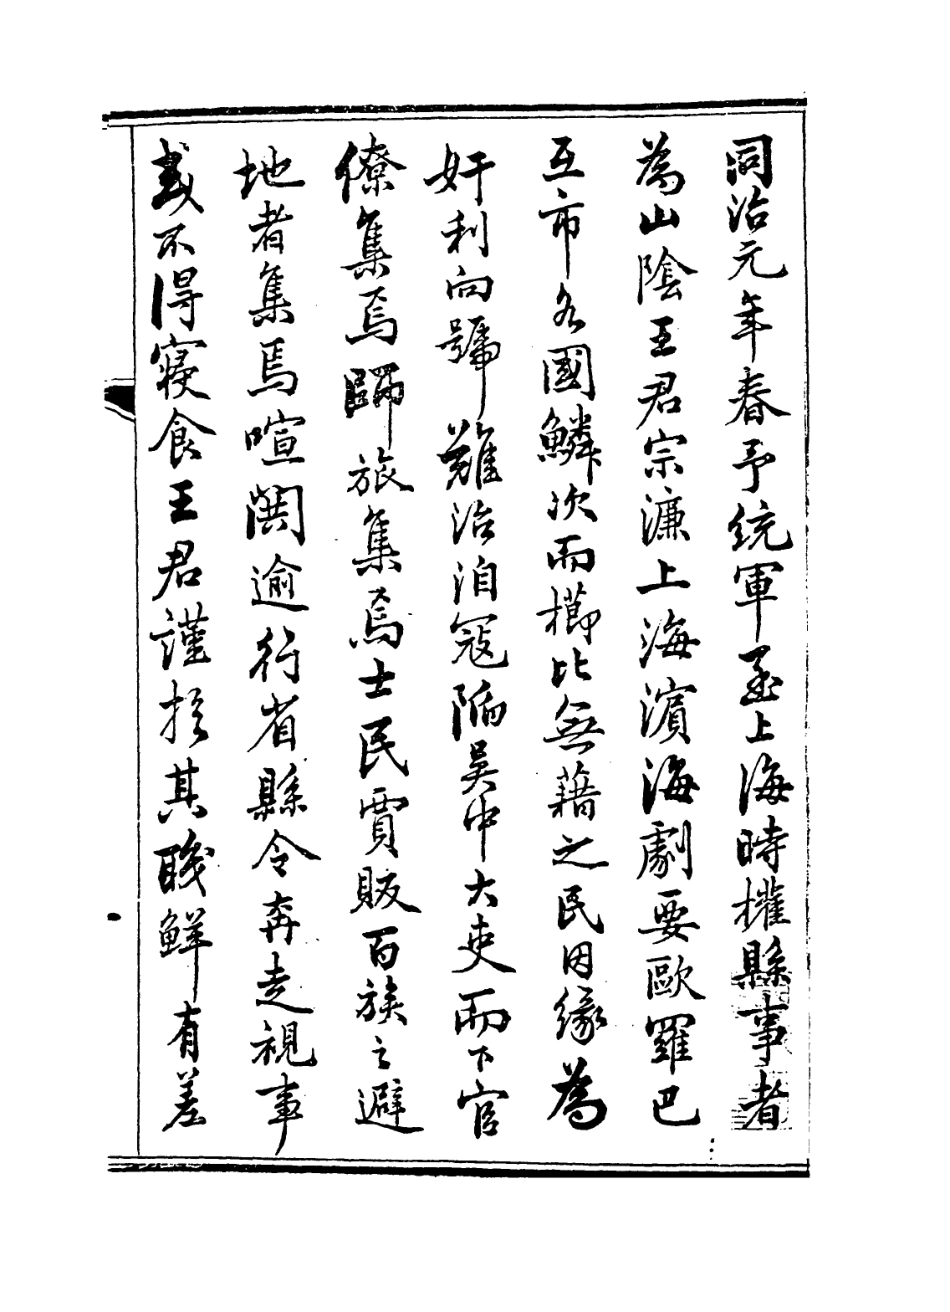 同治元年春予統軍至上海時攉縣事者
為山陰王君宗濂上海濱海劇要歐羅巴
互市各國鱗次而櫛比無藉之民因緣為
奸利向號難治洎寇陷吳中大吏而下官
僚集焉羇旅集焉士民賈販百族之避
地者集焉喧闐逾行省縣令奔走視事
或不得寢食王君謹於其職鮮有差